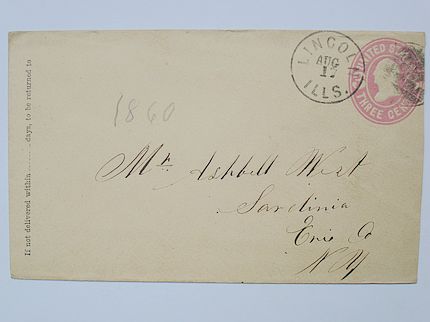 If not delivered within ........ days, to be returned to
LINCOL
AUG
17
ILLS.
UNITED STA
THREE CEN
1860
Mr. Ashbell West
Sardinia
Erie Co
NY